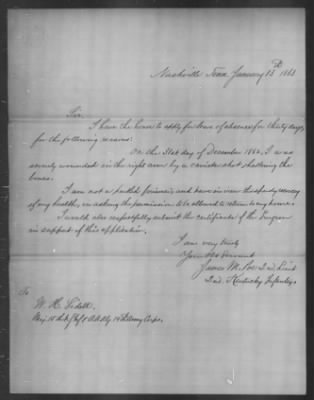 Nashville Tenn January 13th 1863
Sir
I have the honor to apply for leave of absence for thirty days,
for the following reasons:
On the 31st day of December 1862, I was
severely wounded in the right arm by a canister shot shattering the
bones.
I am not a paroled prisoner, and have in view the speedy recovery
of my health, in asking the permission to be allowed to return to my home.
I would also respectfully submit the certificate of the Surgeon
in support of this application.
I am very truly
Your Obt Servant
James M. 2nd Lieut
2nd Kentucky Infantry
To
W. H. Sidell
Maj 15th Inf A.A.A.G. 14th Army Corps.